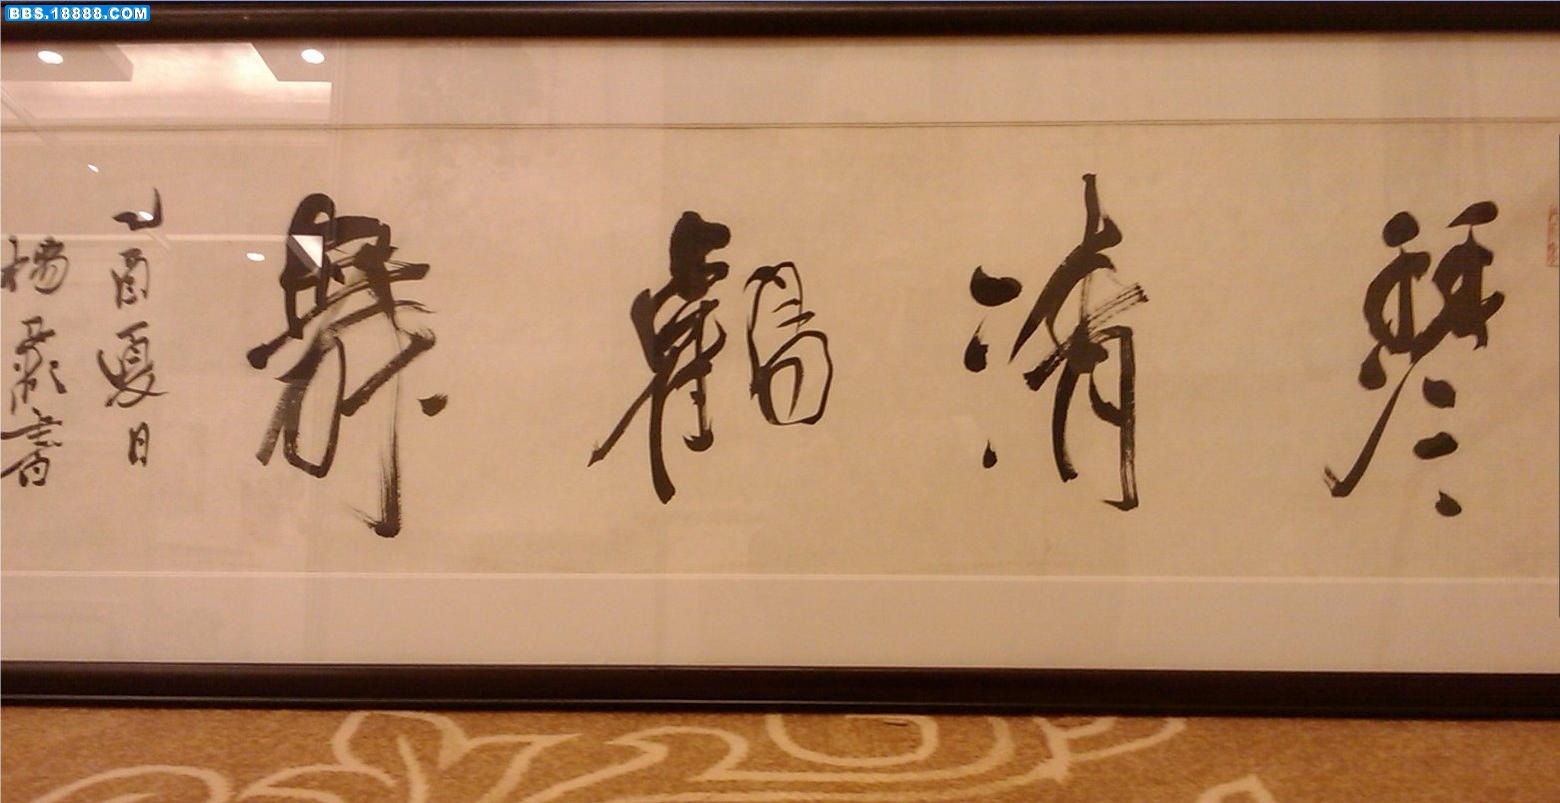 BBS.18888.COM
琴清鶴舞
乙酉夏日
楊書